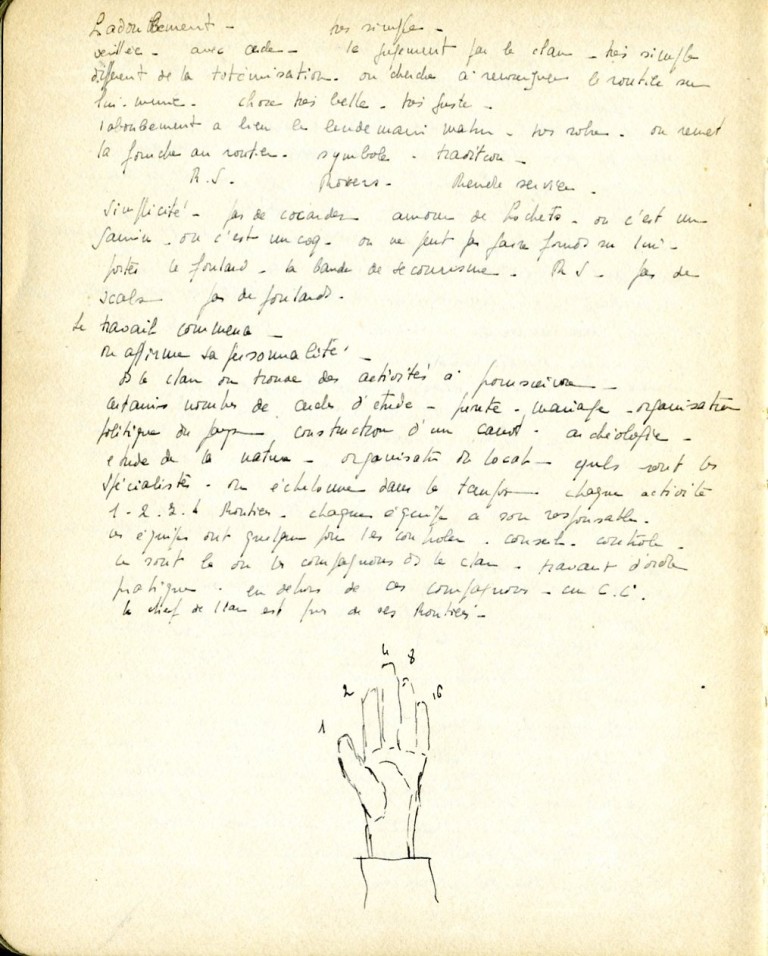 L'adoubement - très simple -
veillée - avec cercle - le jugement par le clan - très simple
différent de la totémisation. on cherche à le routier sur
lui-même. chose très belle - très juste -
l'adoubement a lieu le lendemain matin - très sobre. on remet
la fourche au routier. symbole - tradition -
R.S. Rovers. Rendre service.
Simplicité - pas de cocardes amour de hochets - ou c'est un
gamin - ou c'est un coq - on ne peut pas faire fonds sur lui -
porter le foulard - la bande de secourisme. R S. pas de
scalp pas de foulards.
Le travail commence -
on affirme sa personnalité -
ds le clan on trouve des activités à poursuivre -
certains nombre de cercles d'étude - mariage - organisation
politique du pays construction d'un canot - archéologie -
étude de la nature - organisation du local - quels sont les
spécialistes - on échelonne dans le temps chaque activité
1 - 2. 3. 4 Routiers - chaque équipe a son responsable.
les équipes ont quelqu'un pour les contrôler. conseil. contrôle.
ce sont le ou les compagnons ds le clan - travail d'ordre
pratique. en dehors de ces compagnons - un C.C.
le chef de clan est pris de ses Routiers -
1 2 4 8 16